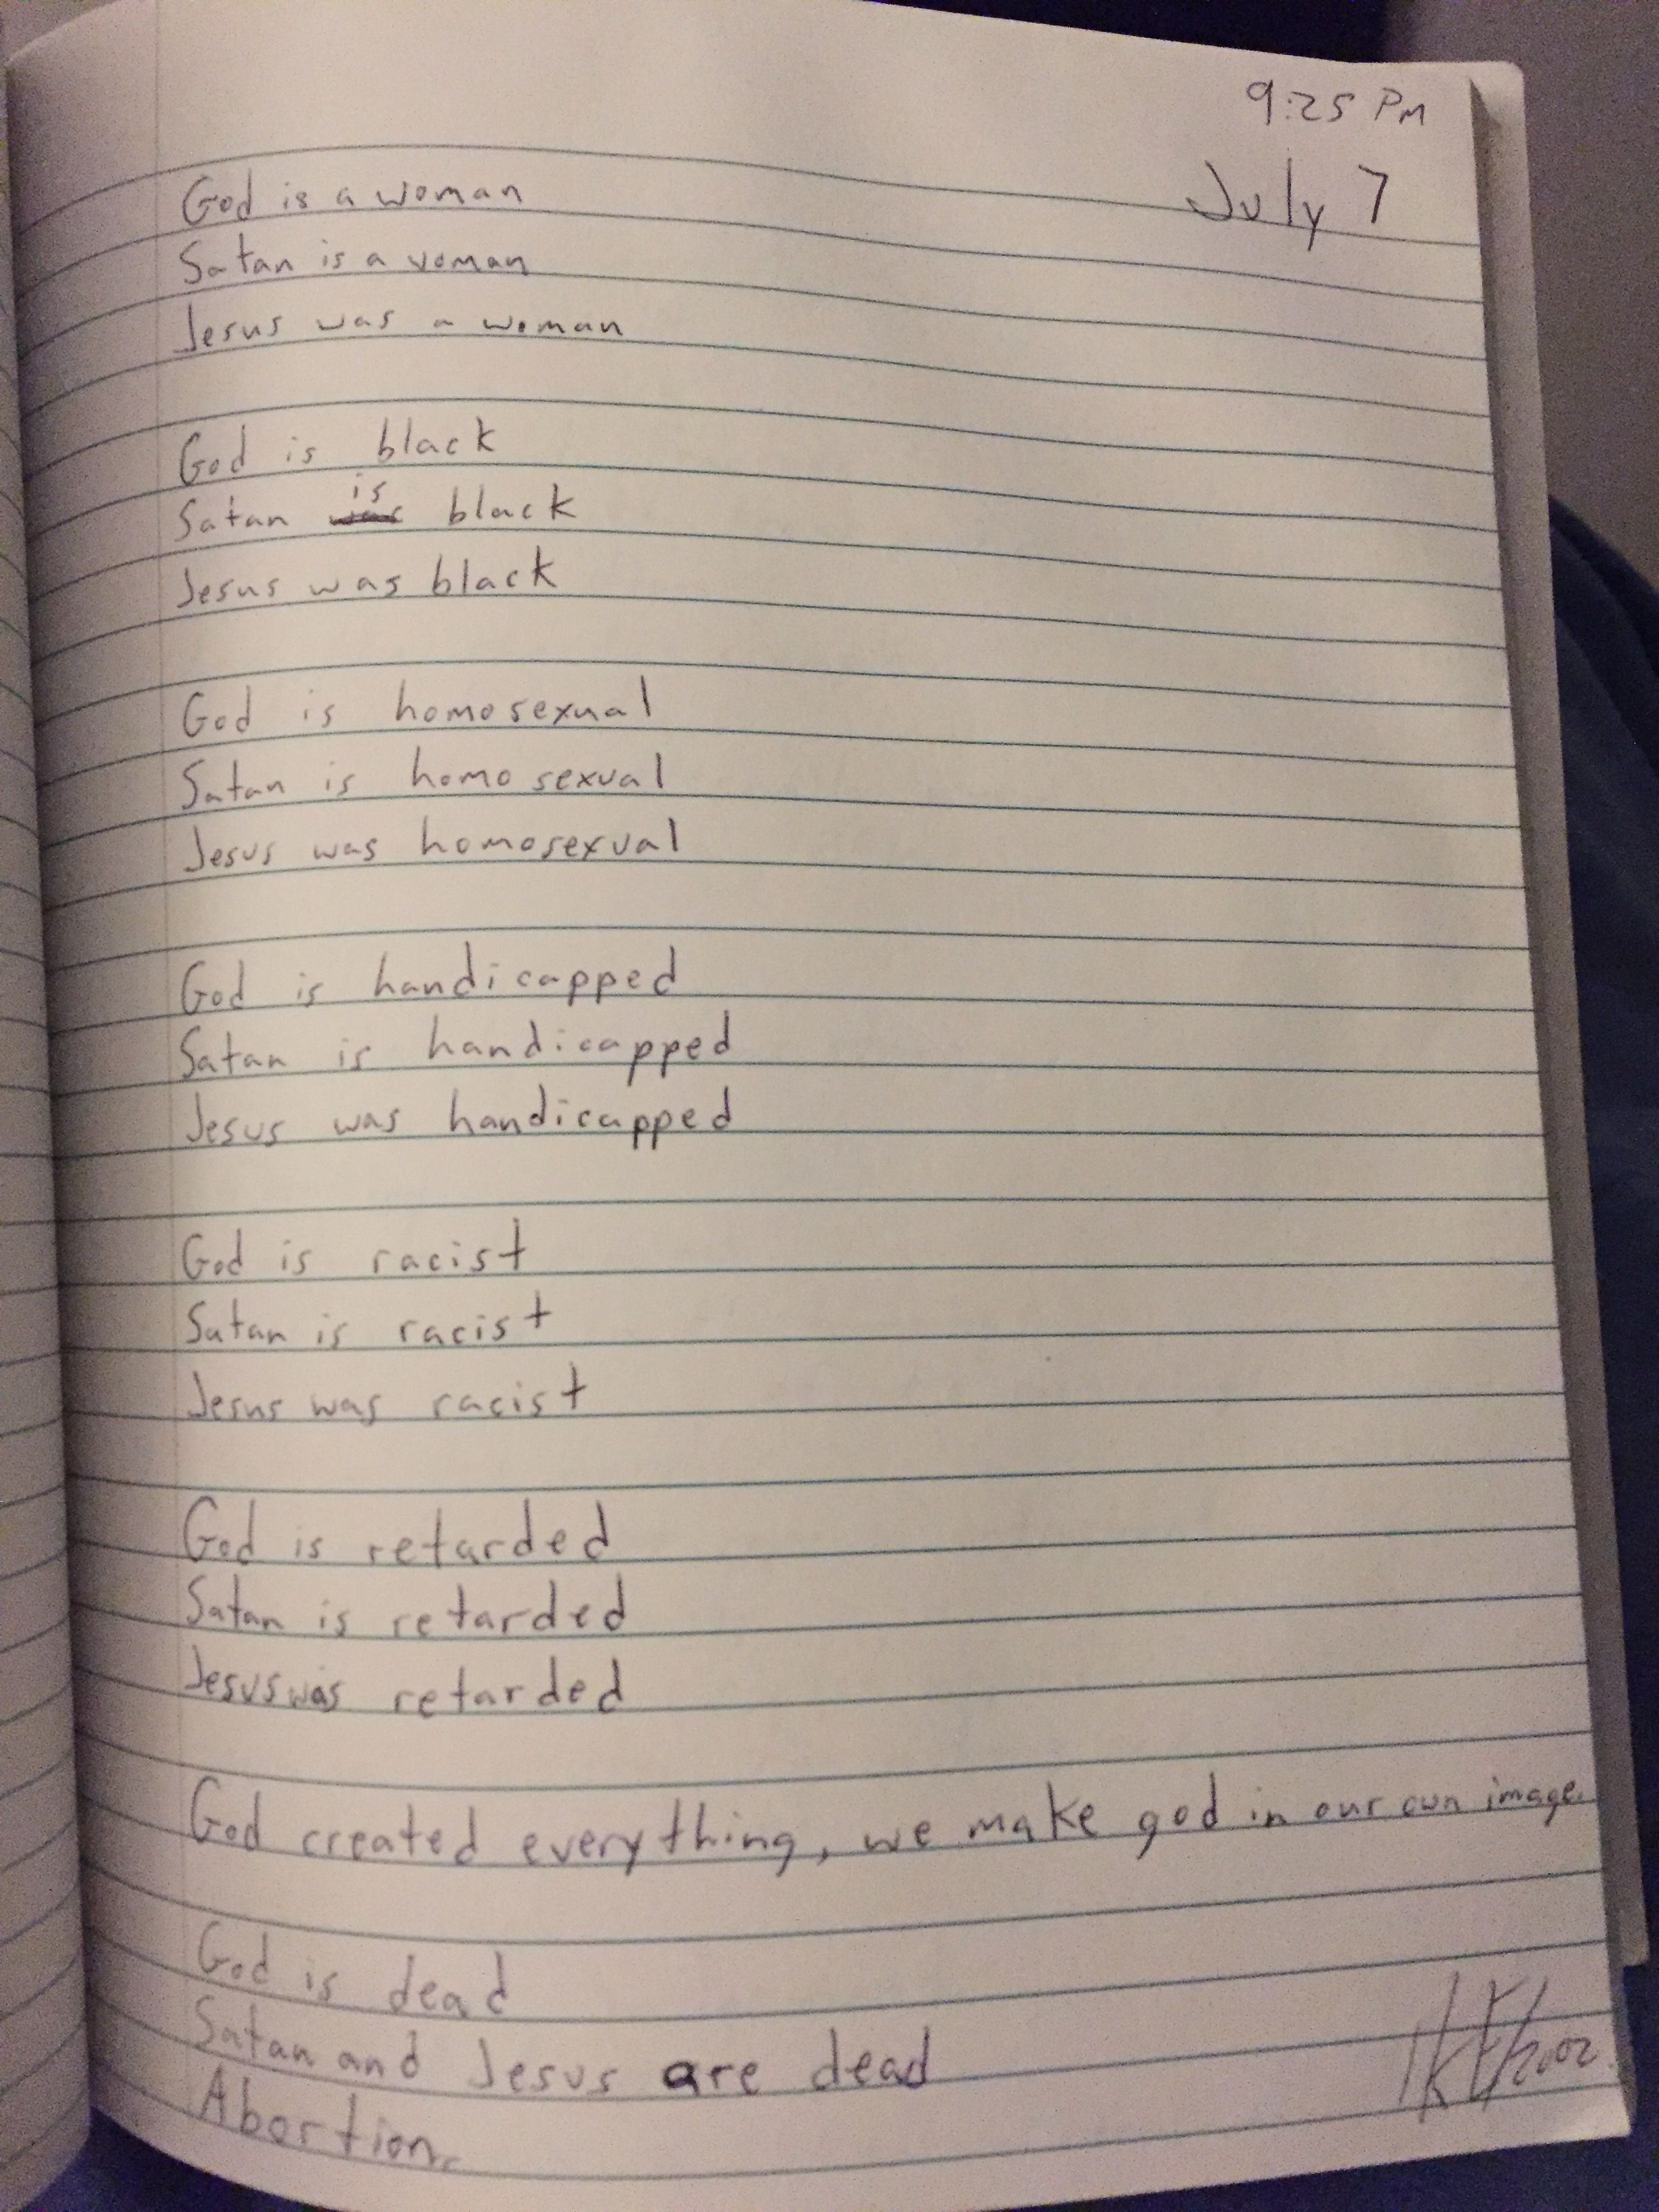 9:25 PM
July 7
God is a woman
Satan is a woman
Jesus was a woman
God is black
is
Satan was black
Jesus was black
God is homosexual
Satan is homosexual
Jesus was homosexual
God is handicapped
Satan is handicapped
Jesus was handicapped
God is racist
Satan is racist
Jesus was racist
God is retarded
Satan is retarded
Jesus was retarded
God created everything, we make god in our own image.
God is dead
Satan and Jesus are dead
Abortion.